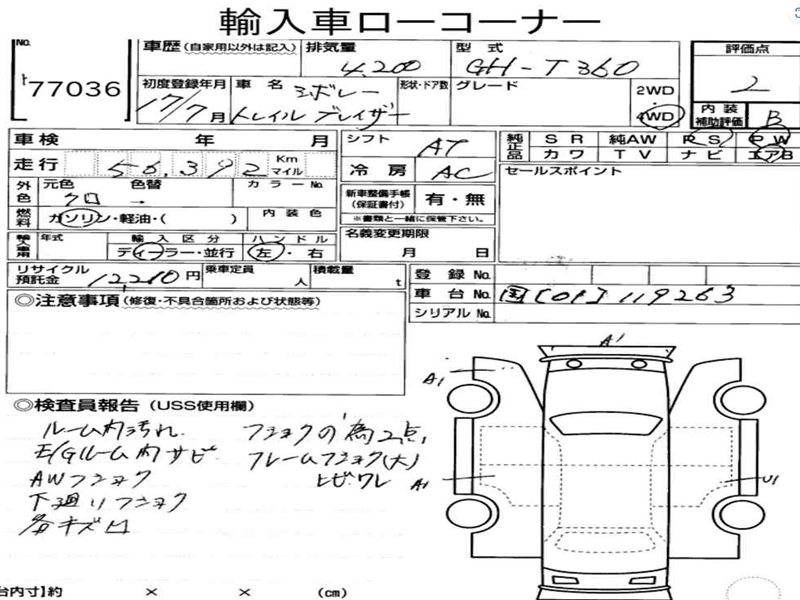 輸入車ローコーナー
No. ト 77036
車歴 (自家用以外は記入) 排気量 4,200 型式 GH-T360 評価点 2
初度登録年月 17/7月 車名 シボレー トレイル ブレイザー 形状・ドア数 グレード 2WD 4WD 内装補助評価 B
車検 年 月 シフト AT 純正品 SR 純AW PS PW
走行 56,392 Km マイル 冷房 AC カワ TV ナビ エアB
外色 元色 クロ 色替 → カラーNo. 新車整備手帳 (保証書付) 有・無 セールスポイント
燃料 ガソリン・軽油・( ) 内装色 ※書類と一緒に保管下さい。
輸入車用 年式 輸入区分 ディーラー・並行 ハンドル 左・右 名義変更期限 月 日
リサイクル預託金 12,210円 乗車定員 人 積載量 t 登録No.
車台No. 国[01]119263
シリアルNo.
◎注意事項 (修復・不具合箇所および状態等)
◎検査員報告 (USS使用欄)
ルーム内汚れ フショクの為2点
E/Gルーム内サビ フレームフショク(大)
AWフショク ヒビワレ
下廻りフショク
各キズ凹
A1
A1
A1
U1
台内寸】約 × × (cm)